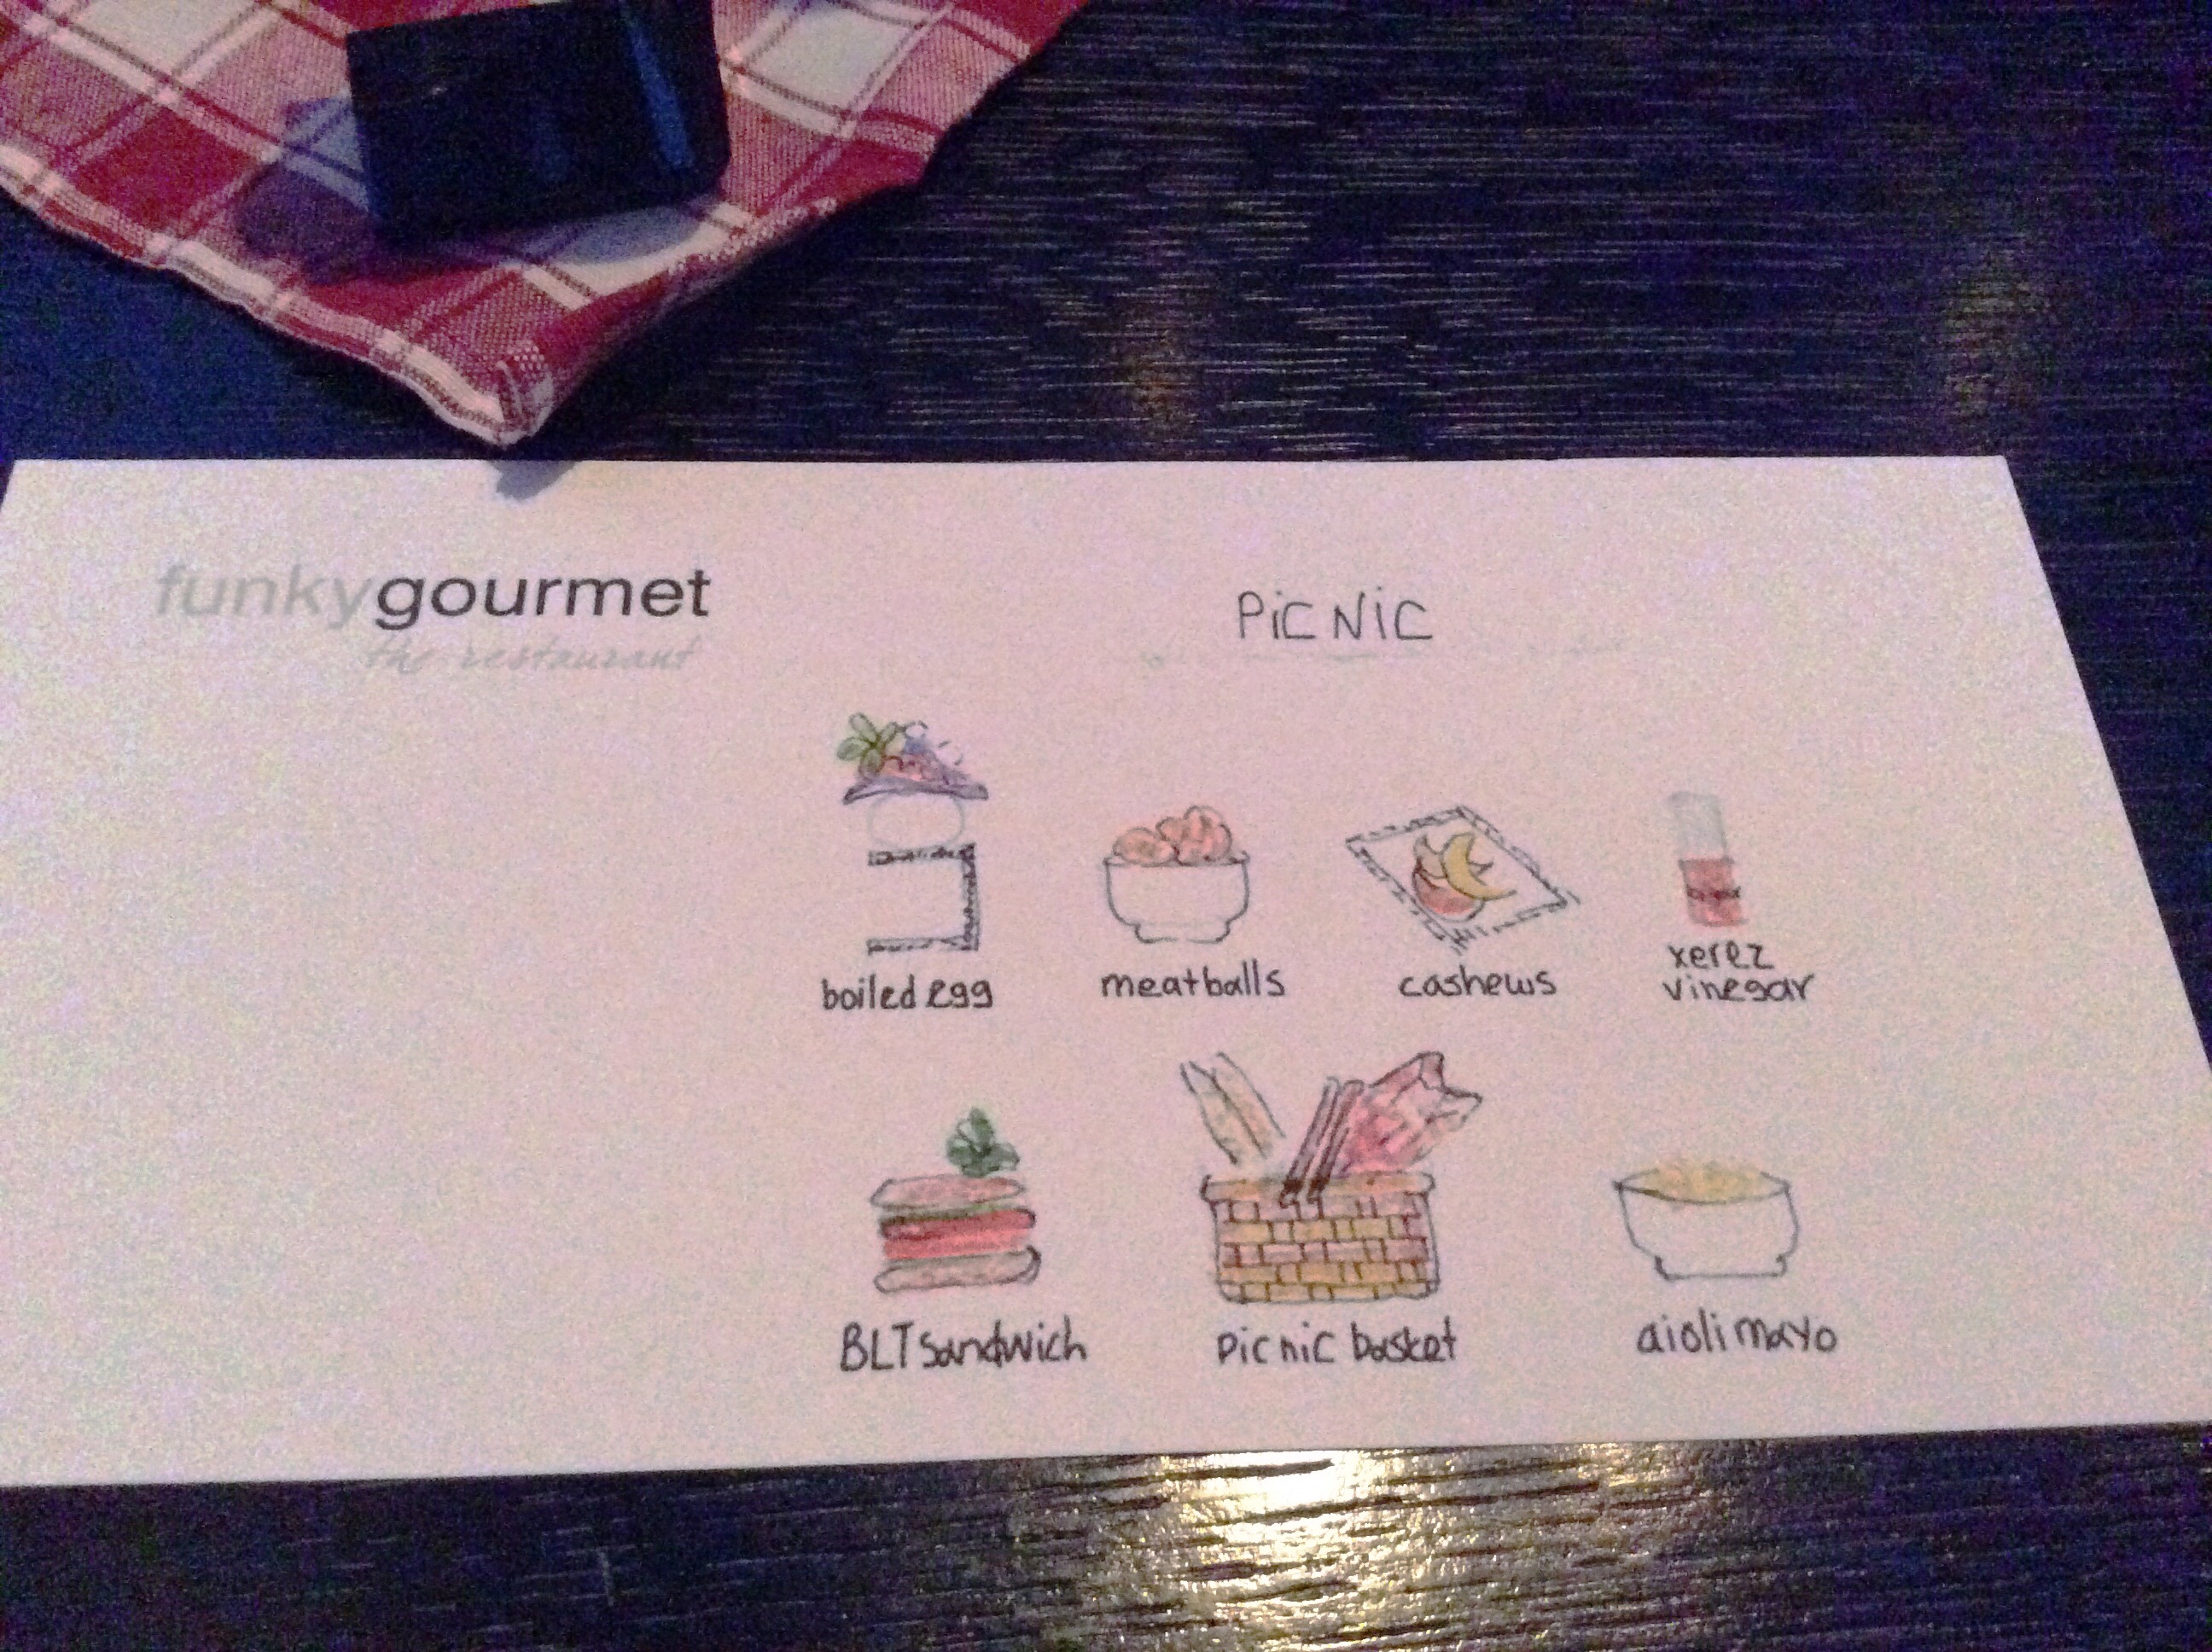 funkygourmet
the restaurant
PiCNiC
boiled egg
meatballs
cashews
xerez
vinegar
BLT sandwich
picnic basket
aioli mayo